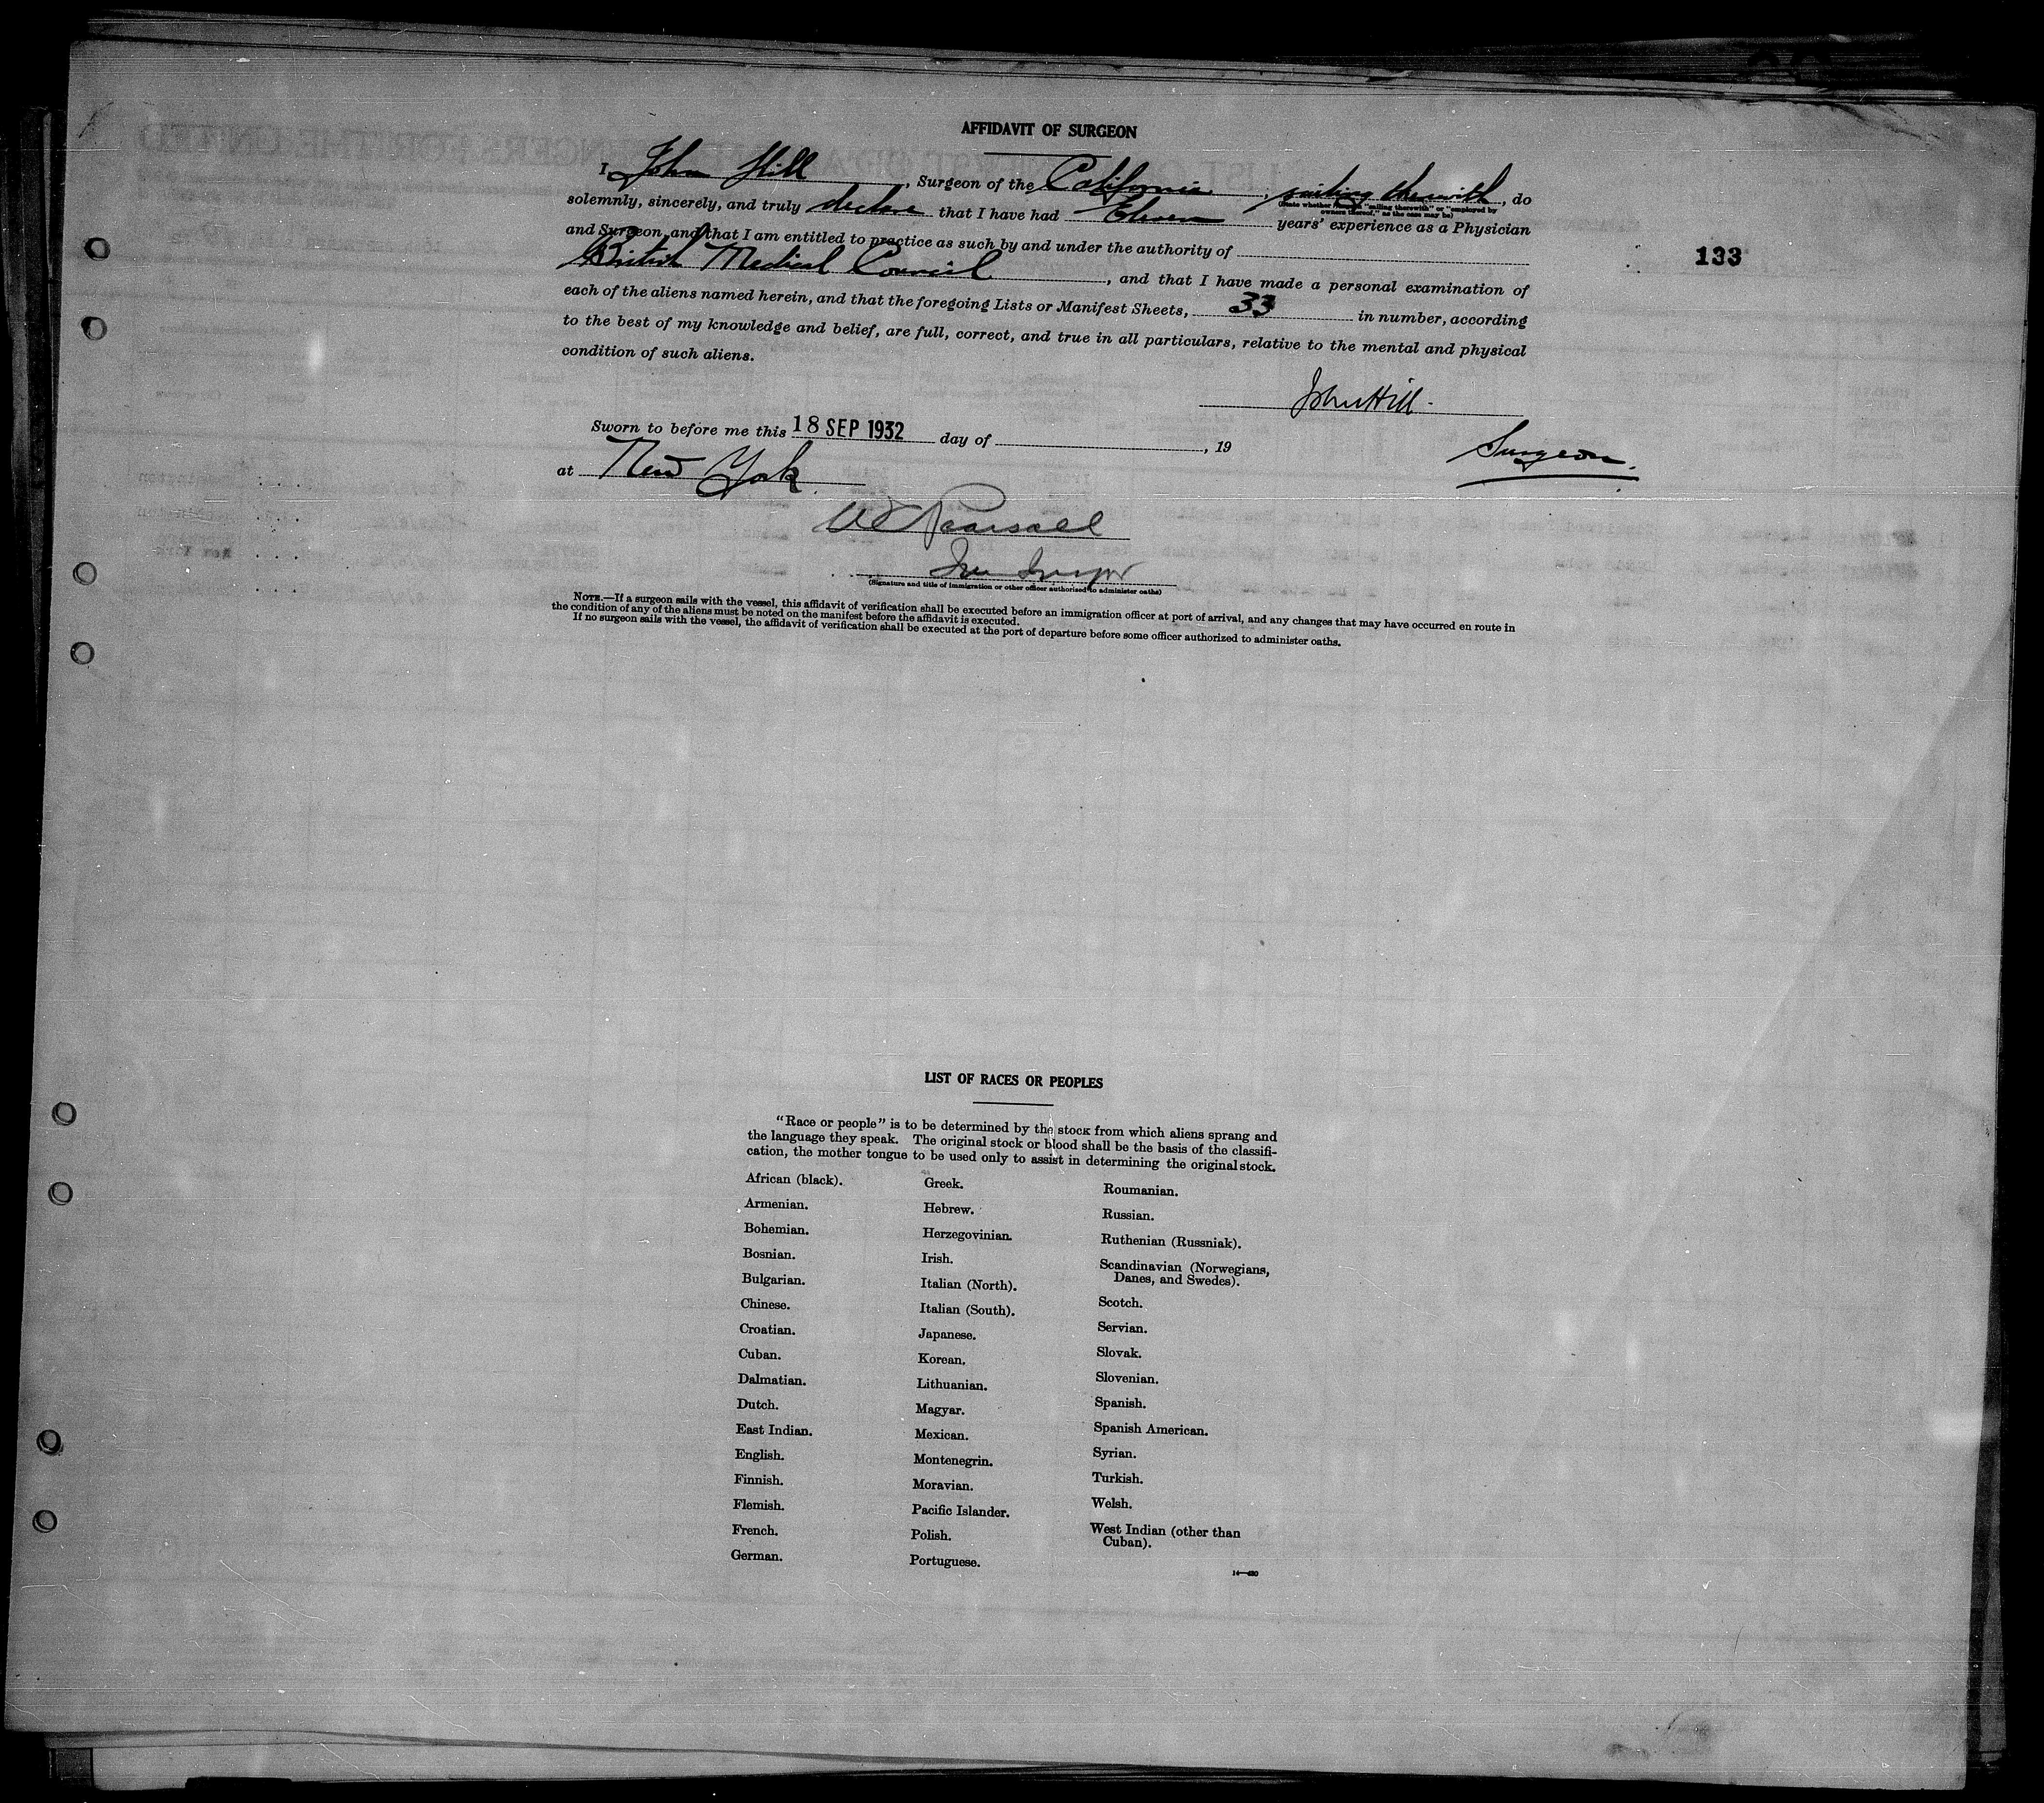 AFFIDAVIT OF SURGEON
I, John Hill, Surgeon of the California, sailing therewith, do
(State whether "sailing therewith" or "employed by
owners thereof," as the case may be)
solemnly, sincerely, and truly declare that I have had Eleven years' experience as a Physician
and Surgeon, and that I am entitled to practice as such by and under the authority of
British Medical Council, and that I have made a personal examination of
133
each of the aliens named herein, and that the foregoing Lists or Manifest Sheets, 33 in number, according
to the best of my knowledge and belief, are full, correct, and true in all particulars, relative to the mental and physical
condition of such aliens.
John Hill.
Sworn to before me this 18 SEP 1932 day of , 19
Surgeon.
at New York.
Pearsall
(Signature and title of immigration or other officer authorised to administer oaths)
NOTE.—If a surgeon sails with the vessel, this affidavit of verification shall be executed before an immigration officer at port of arrival, and any changes that may have occurred en route in
the condition of any of the aliens must be noted on the manifest before the affidavit is executed.
If no surgeon sails with the vessel, the affidavit of verification shall be executed at the port of departure before some officer authorized to administer oaths.
LIST OF RACES OR PEOPLES
"Race or people" is to be determined by the stock from which aliens sprang and
the language they speak. The original stock or blood shall be the basis of the classifi-
cation, the mother tongue to be used only to assist in determining the original stock.
African (black).
Armenian.
Bohemian.
Bosnian.
Bulgarian.
Chinese.
Croatian.
Cuban.
Dalmatian.
Dutch.
East Indian.
English.
Finnish.
Flemish.
French.
German.
Greek.
Hebrew.
Herzegovinian.
Irish.
Italian (North).
Italian (South).
Japanese.
Korean.
Lithuanian.
Magyar.
Mexican.
Montenegrin.
Moravian.
Pacific Islander.
Polish.
Portuguese.
Roumanian.
Russian.
Ruthenian (Russniak).
Scandinavian (Norwegians,
Danes, and Swedes).
Scotch.
Servian.
Slovak.
Slovenian.
Spanish.
Spanish American.
Syrian.
Turkish.
Welsh.
West Indian (other than
Cuban).